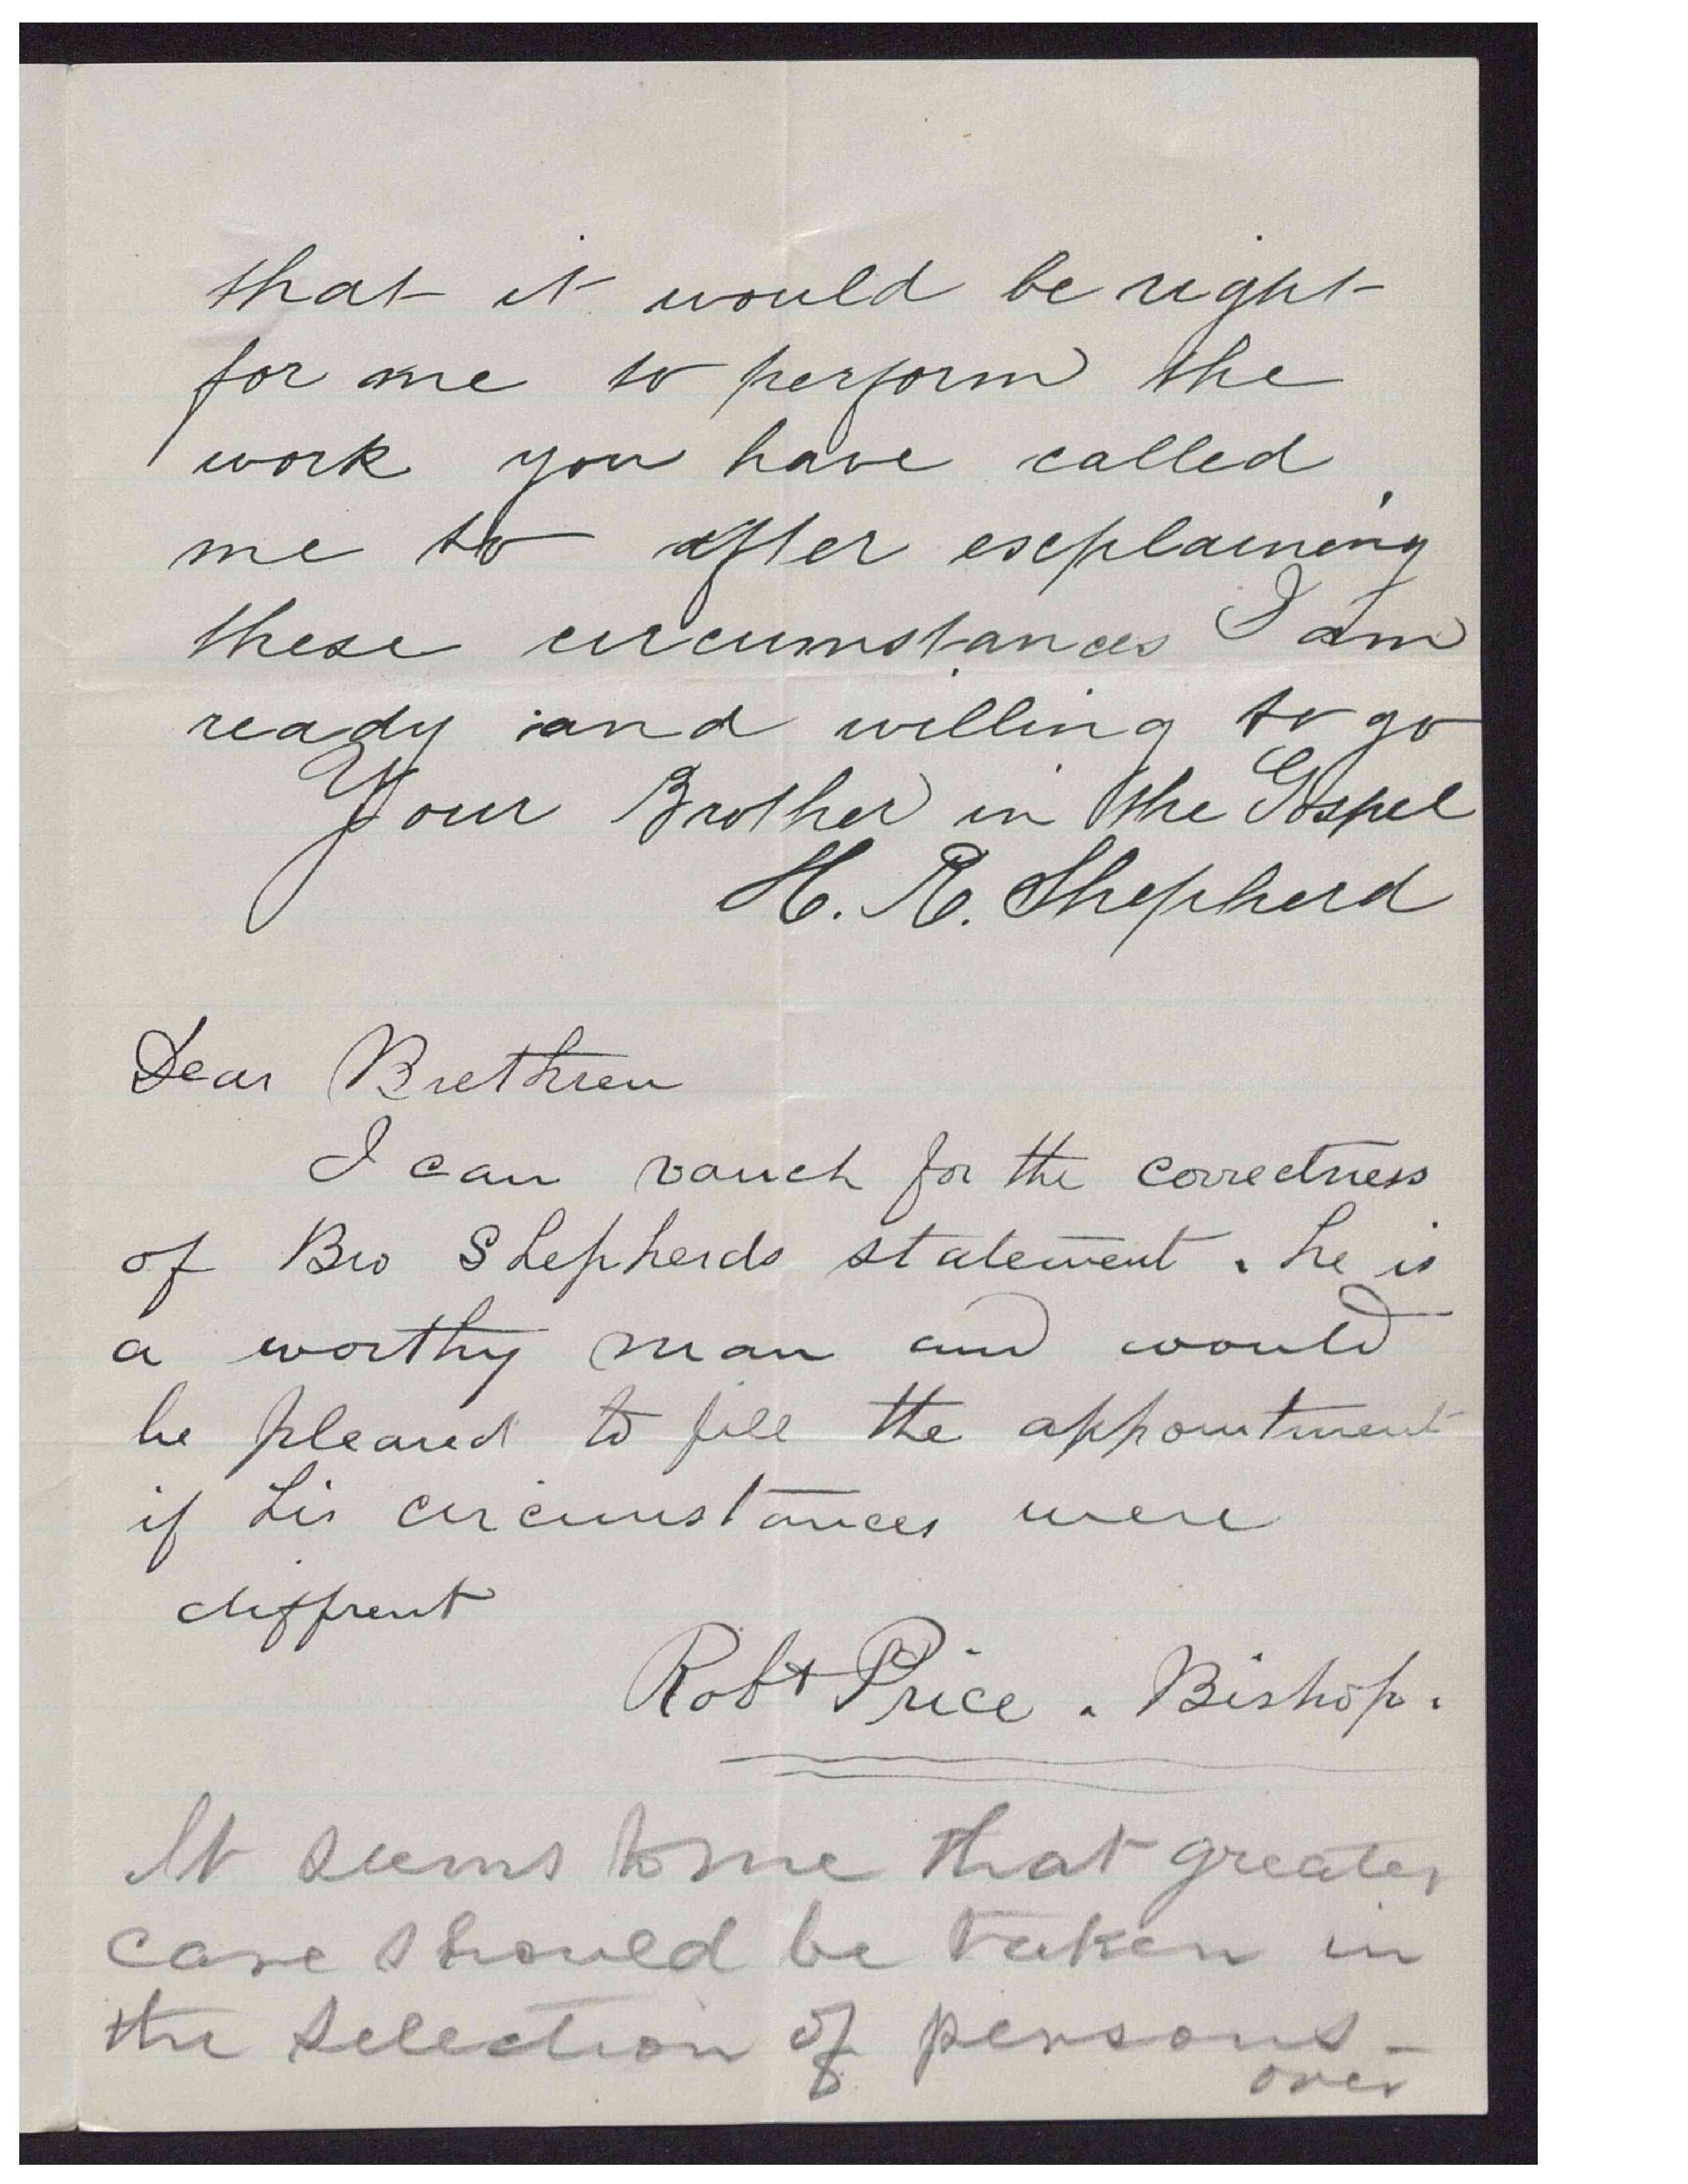 that it would be right
for me to perform the
work you have called
me to after explaining
these circumstances I am
ready and willing to go
Your Brother in the Gospel
H. R. Shepherd
Dear Brethren
I can vouch for the correctness
of Bro Shepherds statement. he is
a worthy man and would
be pleased to fill the appointment
if his circumstances were
diffrent
Robt Price. Bishop.
It seems to me that greater
care should be taken in
the selection of persons -
over